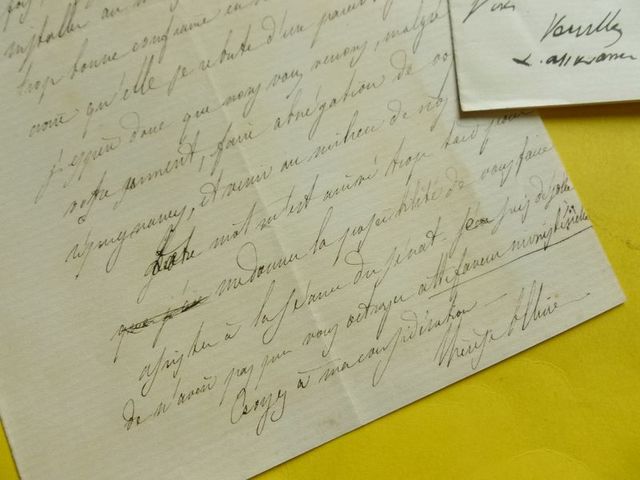 installer au
trop bonne confiance en
croire qu'elle se rebute d'un pareil
j'espère donc que nous vous verrons, malgré
votre serment, faire abnégation de vos
répugnances, et venir au milieu de nos
Votre mot m'est arrivé trop tard pour
me donner la possibilité de vous faire
assister à la séance du sénat. Je suis désolée
de n'avoir pas pu vous octroyer cette faveur ministérielle
Croyez à ma considération
Vous
Veuillez